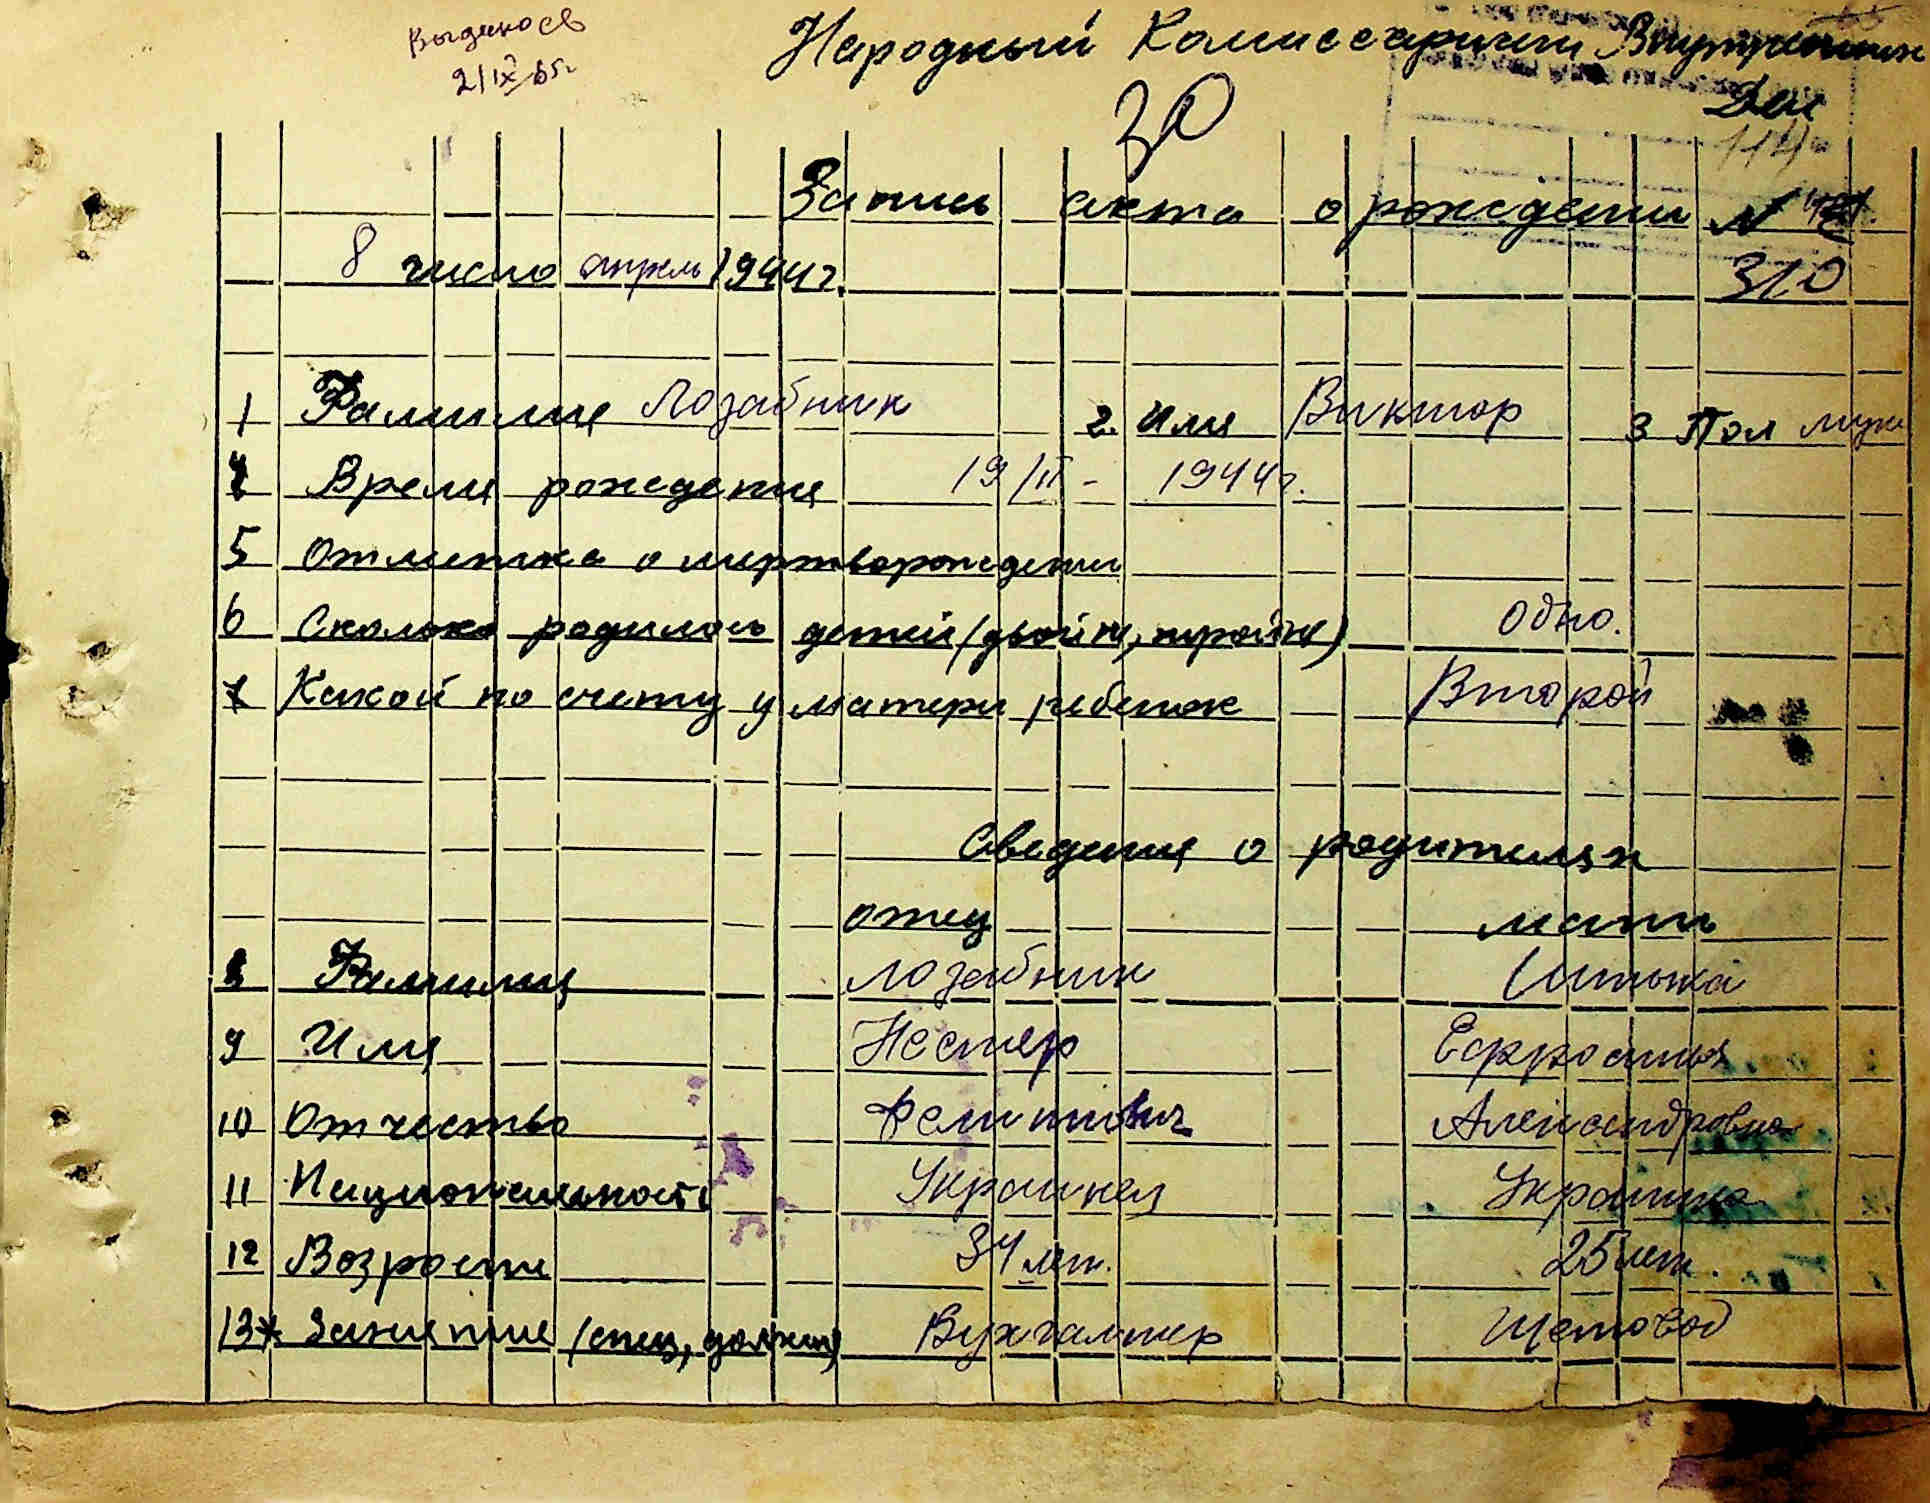 Выдано св
2/IX 65г
Народный Комиссариат Внутренних
Дел
30
114
Запись акта о рождении N
8 число апрель 1944г.
310
1 Фамилия Лозабник 2. Имя Виктор 3 Пол муж
4 Время рождения 19/II - 1944г.
5 Отметка о мертворождении
6 Сколько родилось детей (двойн, тройн) Одно.
7 Какой по счету у матери ребенок Второй
Сведения о родителях
отец мать
8 Фамилия Лозабник
9 Имя Нестер Ефросинья
10 Отчество Александровна
11 Национальность Украинец Украинка
12 Возраст 34 лет. 25 лет.
13 Занятие (спец, должн) Бухгалтер Щетовод